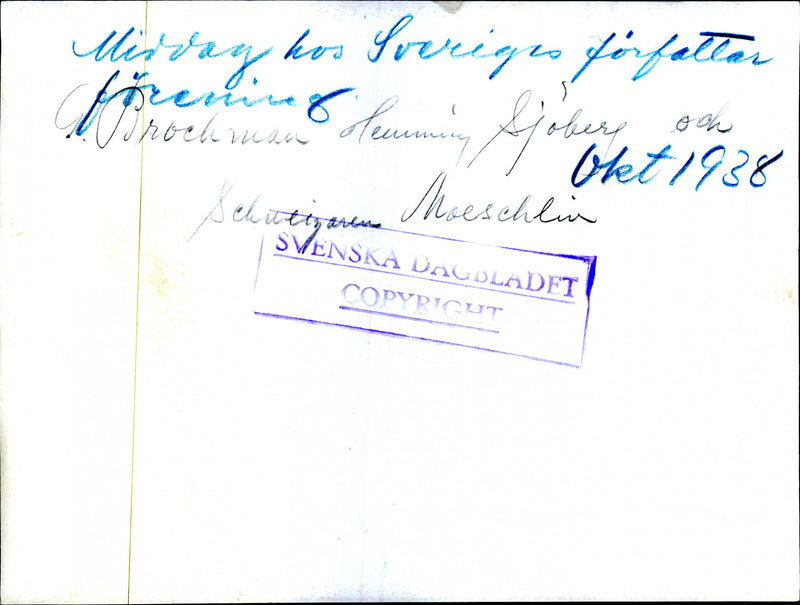 Middag hos Sveriges författar
förening.
G. Brochman Hemming Sjöberg och
Okt 1938
Schweizaren Moeschlin
SVENSKA DAGBLADET
COPYRIGHT